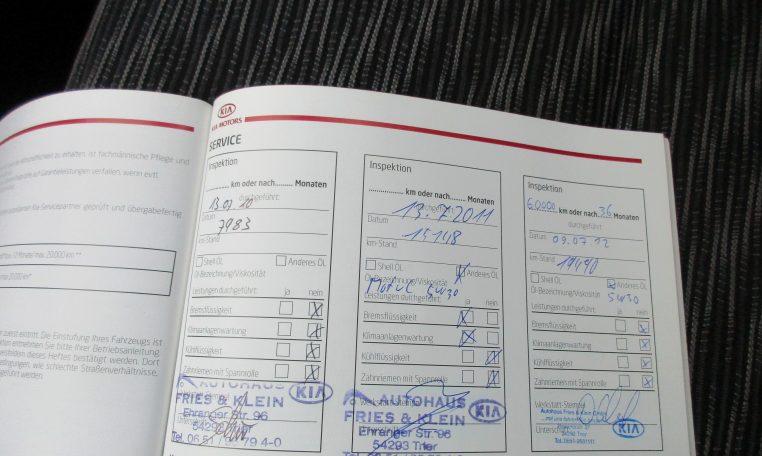 KIA
KIA MOTORS
SERVICE
einwöchentlich zu erhalten, ist fachmännische Pflege und
Garantieleistungen verfallen, wenn evtl.
Servicepartner geprüft und übergabefertig
12 Monate / max. 20.000 km **
zuerst eintritt. Die Einstufung Ihres Fahrzeugs ist
entnehmen Sie bitte Ihrer Betriebsanleitung
dieses Heftes bestätigt werden. Dort
wie schlechte Straßenverhältnisse,
geführt werden.
Inspektion
km oder nach......... Monaten
durchgeführt:
13.07.10
Datum
7983
km-Stand
Shell ÖL
Anderes ÖL
Öl-Bezeichnung/Viskosität
Leistungen durchgeführt: ja nein
Bremsflüssigkeit
Klimaanlagenwartung
Kühlflüssigkeit
Zahnriemen mit Spannrolle
AUTOHAUS KIA
FRIES & KLEIN
Ehranger Str. 96
54293 Trier
Tel. 06 51 / 79 4-0
Inspektion
km oder nach......... Monaten
durchgeführt:
13.7.2011
Datum
15148
km-Stand
Shell ÖL
Anderes ÖL
Öl-Bezeichnung/Viskosität
Motul 5W30
Leistungen durchgeführt: ja nein
Bremsflüssigkeit
Klimaanlagenwartung
Kühlflüssigkeit
Zahnriemen mit Spannrolle
AUTOHAUS
FRIES & KLEIN KIA
Ehranger Str. 96
54293 Trier
Inspektion
60000 km oder nach 36 Monaten
durchgeführt
Datum 09.07.12
km-Stand 19490
Shell ÖL
Anderes ÖL
Öl-Bezeichnung/Viskosität
5W30
Leistungen durchgeführt: ja nein
Bremsflüssigkeit
Klimaanlagenwartung
Kühlflüssigkeit
Zahnriemen mit Spannrolle
Werkstatt-Stempel
Autohaus Fries & Klein GmbH
KIA